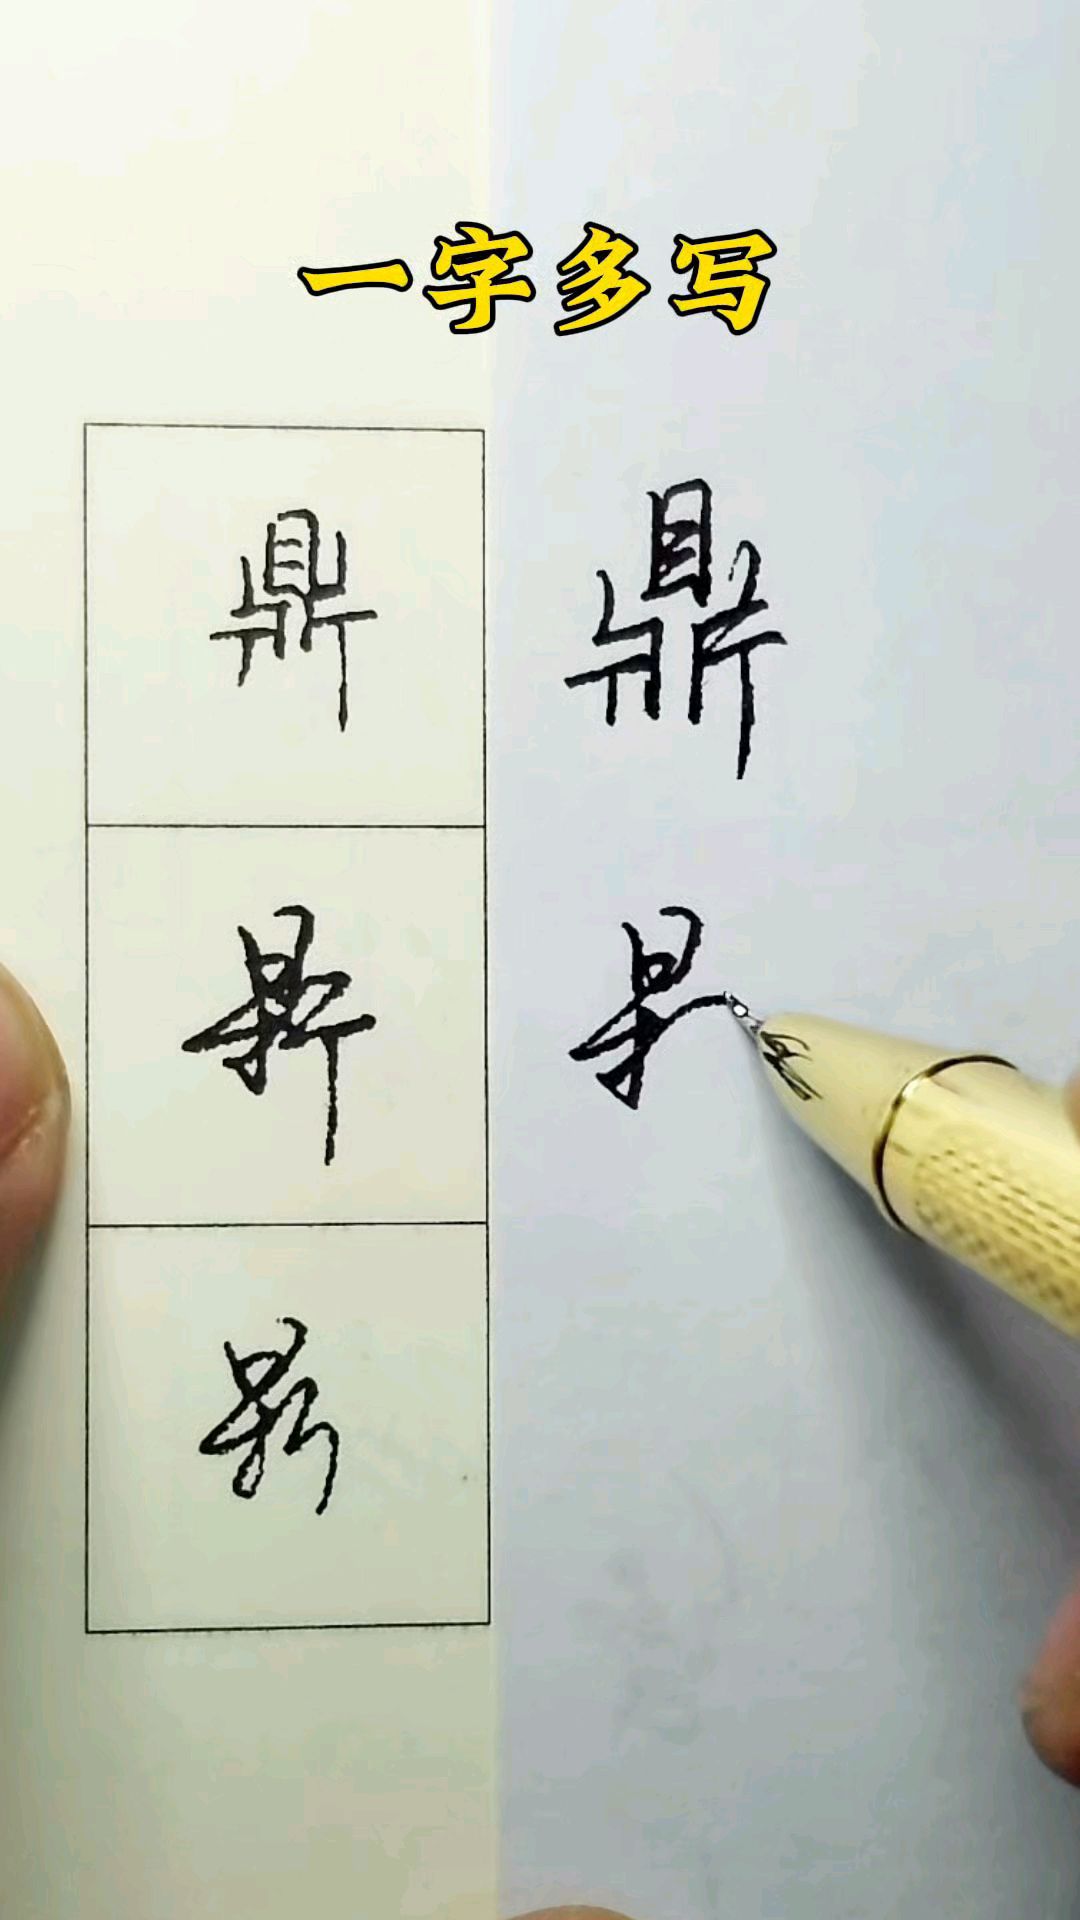 一字多写
鼎 鼎
鼎
鼎